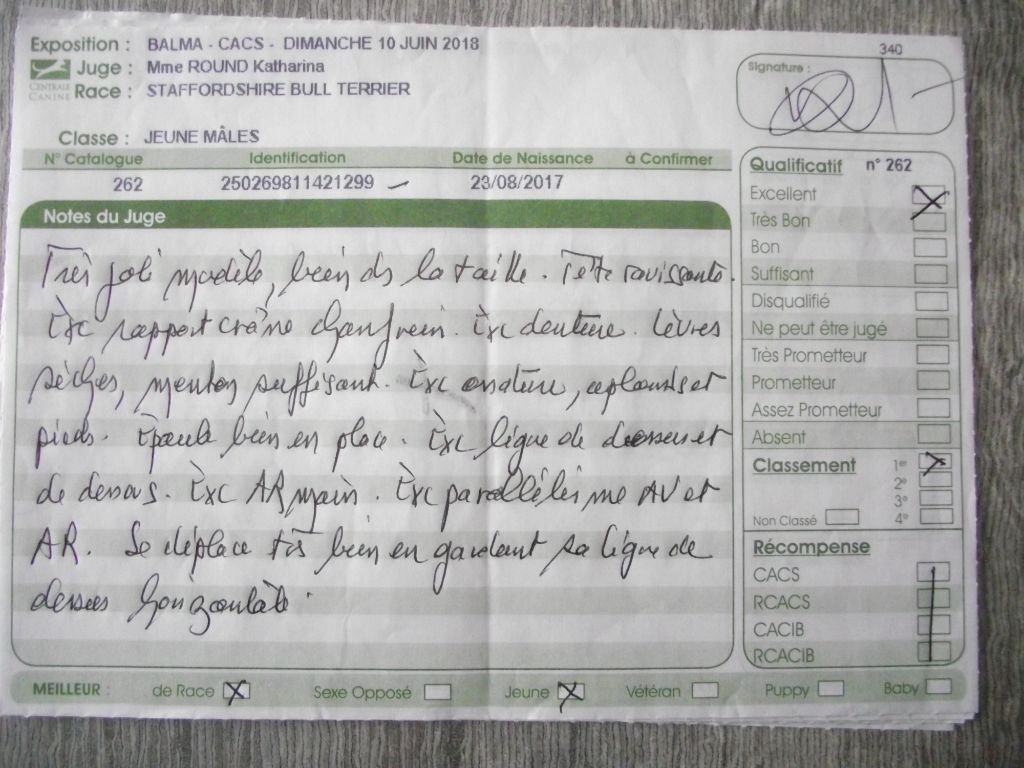 340
Exposition : BALMA - CACS - DIMANCHE 10 JUIN 2018
Juge : Mme ROUND Katharina
CENTRALE CANINE
Race : STAFFORDSHIRE BULL TERRIER
Signature :
Classe : JEUNE MÂLES
N° Catalogue Identification Date de Naissance à Confirmer
262 250269811421299 23/08/2017
Notes du Juge
Très joli modèle, bien ds la taille. Tête ravissante.
Exc rapport crâne chanfrein. Exc denture. Lèvres
sèches, menton suffisant. Exc ossature, aplombs et
pieds. Epaule bien en place. Exc ligne de dessus et
de dessous. Exc AR main. Exc parallélisme AV et
AR. Se déplace très bien en gardant sa ligne de
dessus horizontale.
Qualificatif n° 262
Excellent
Très Bon
Bon
Suffisant
Disqualifié
Ne peut être jugé
Très Prometteur
Prometteur
Assez Prometteur
Absent
Classement 1er
2°
3°
Non Classé 4°
Récompense
CACS
RCACS
CACIB
RCACIB
MEILLEUR : de Race Sexe Opposé Jeune Vétéran Puppy Baby